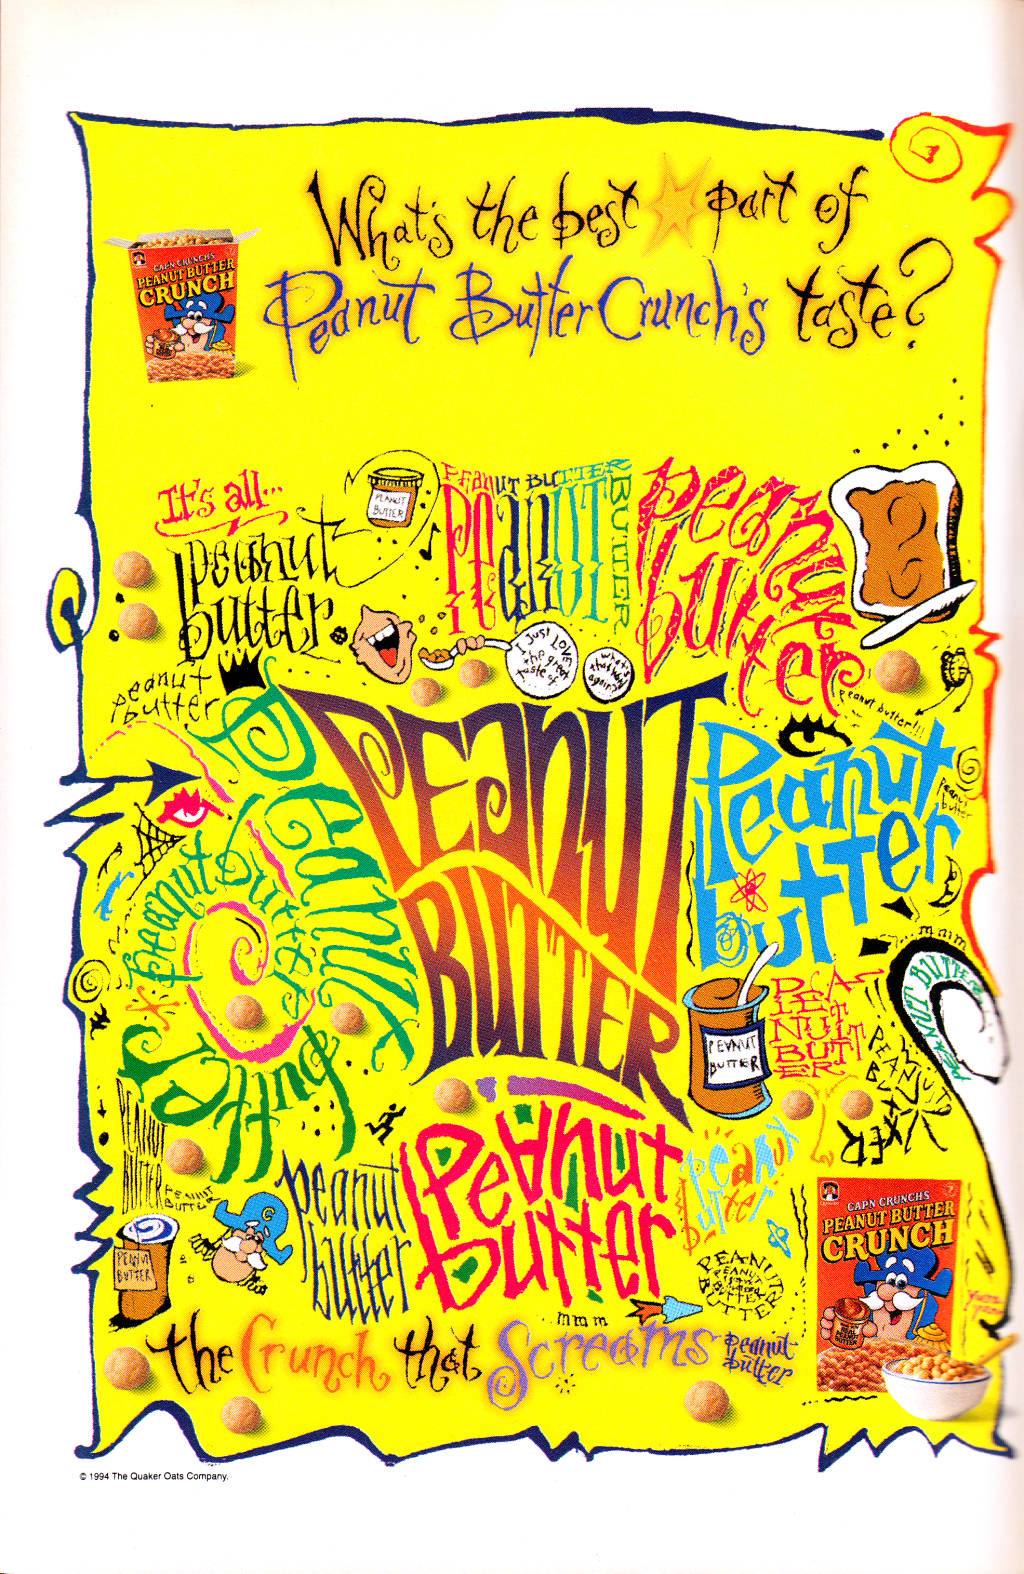 What's the best part of
Peanut Butter Crunch's taste?
CAP'N CRUNCH'S
PEANUT BUTTER
CRUNCH
It's all...
peanut
butter
PEANUT
BUTTER
PEANUT BUTTER
PEANUT
BUTTER
Peanut
butter
I Just LOVE
the great
taste of
what's
that word
again?
peanut
butter
peanut butter!!!
Peanut
Butter
PEANUT
BUTTER
Peanut
butter
Peanut
butter
peanut butter
...mnim
PEANUT BUTTER
PEANUT
BUTTER
PEA
PEA
NUT
BUTT
ER
PEANUT
BUTTER
PEANUT
BUTTER
PEANUT
BUTTER
PEANUT
BUTTER
C
peanut
butter
Peanut
butter
peanut
butter
PEANUT
BUTTER
CAP'N CRUNCH'S
PEANUT BUTTER
CRUNCH
yum
yum
...mmm
the Crunch that Screams peanut
butter
© 1994 The Quaker Oats Company.